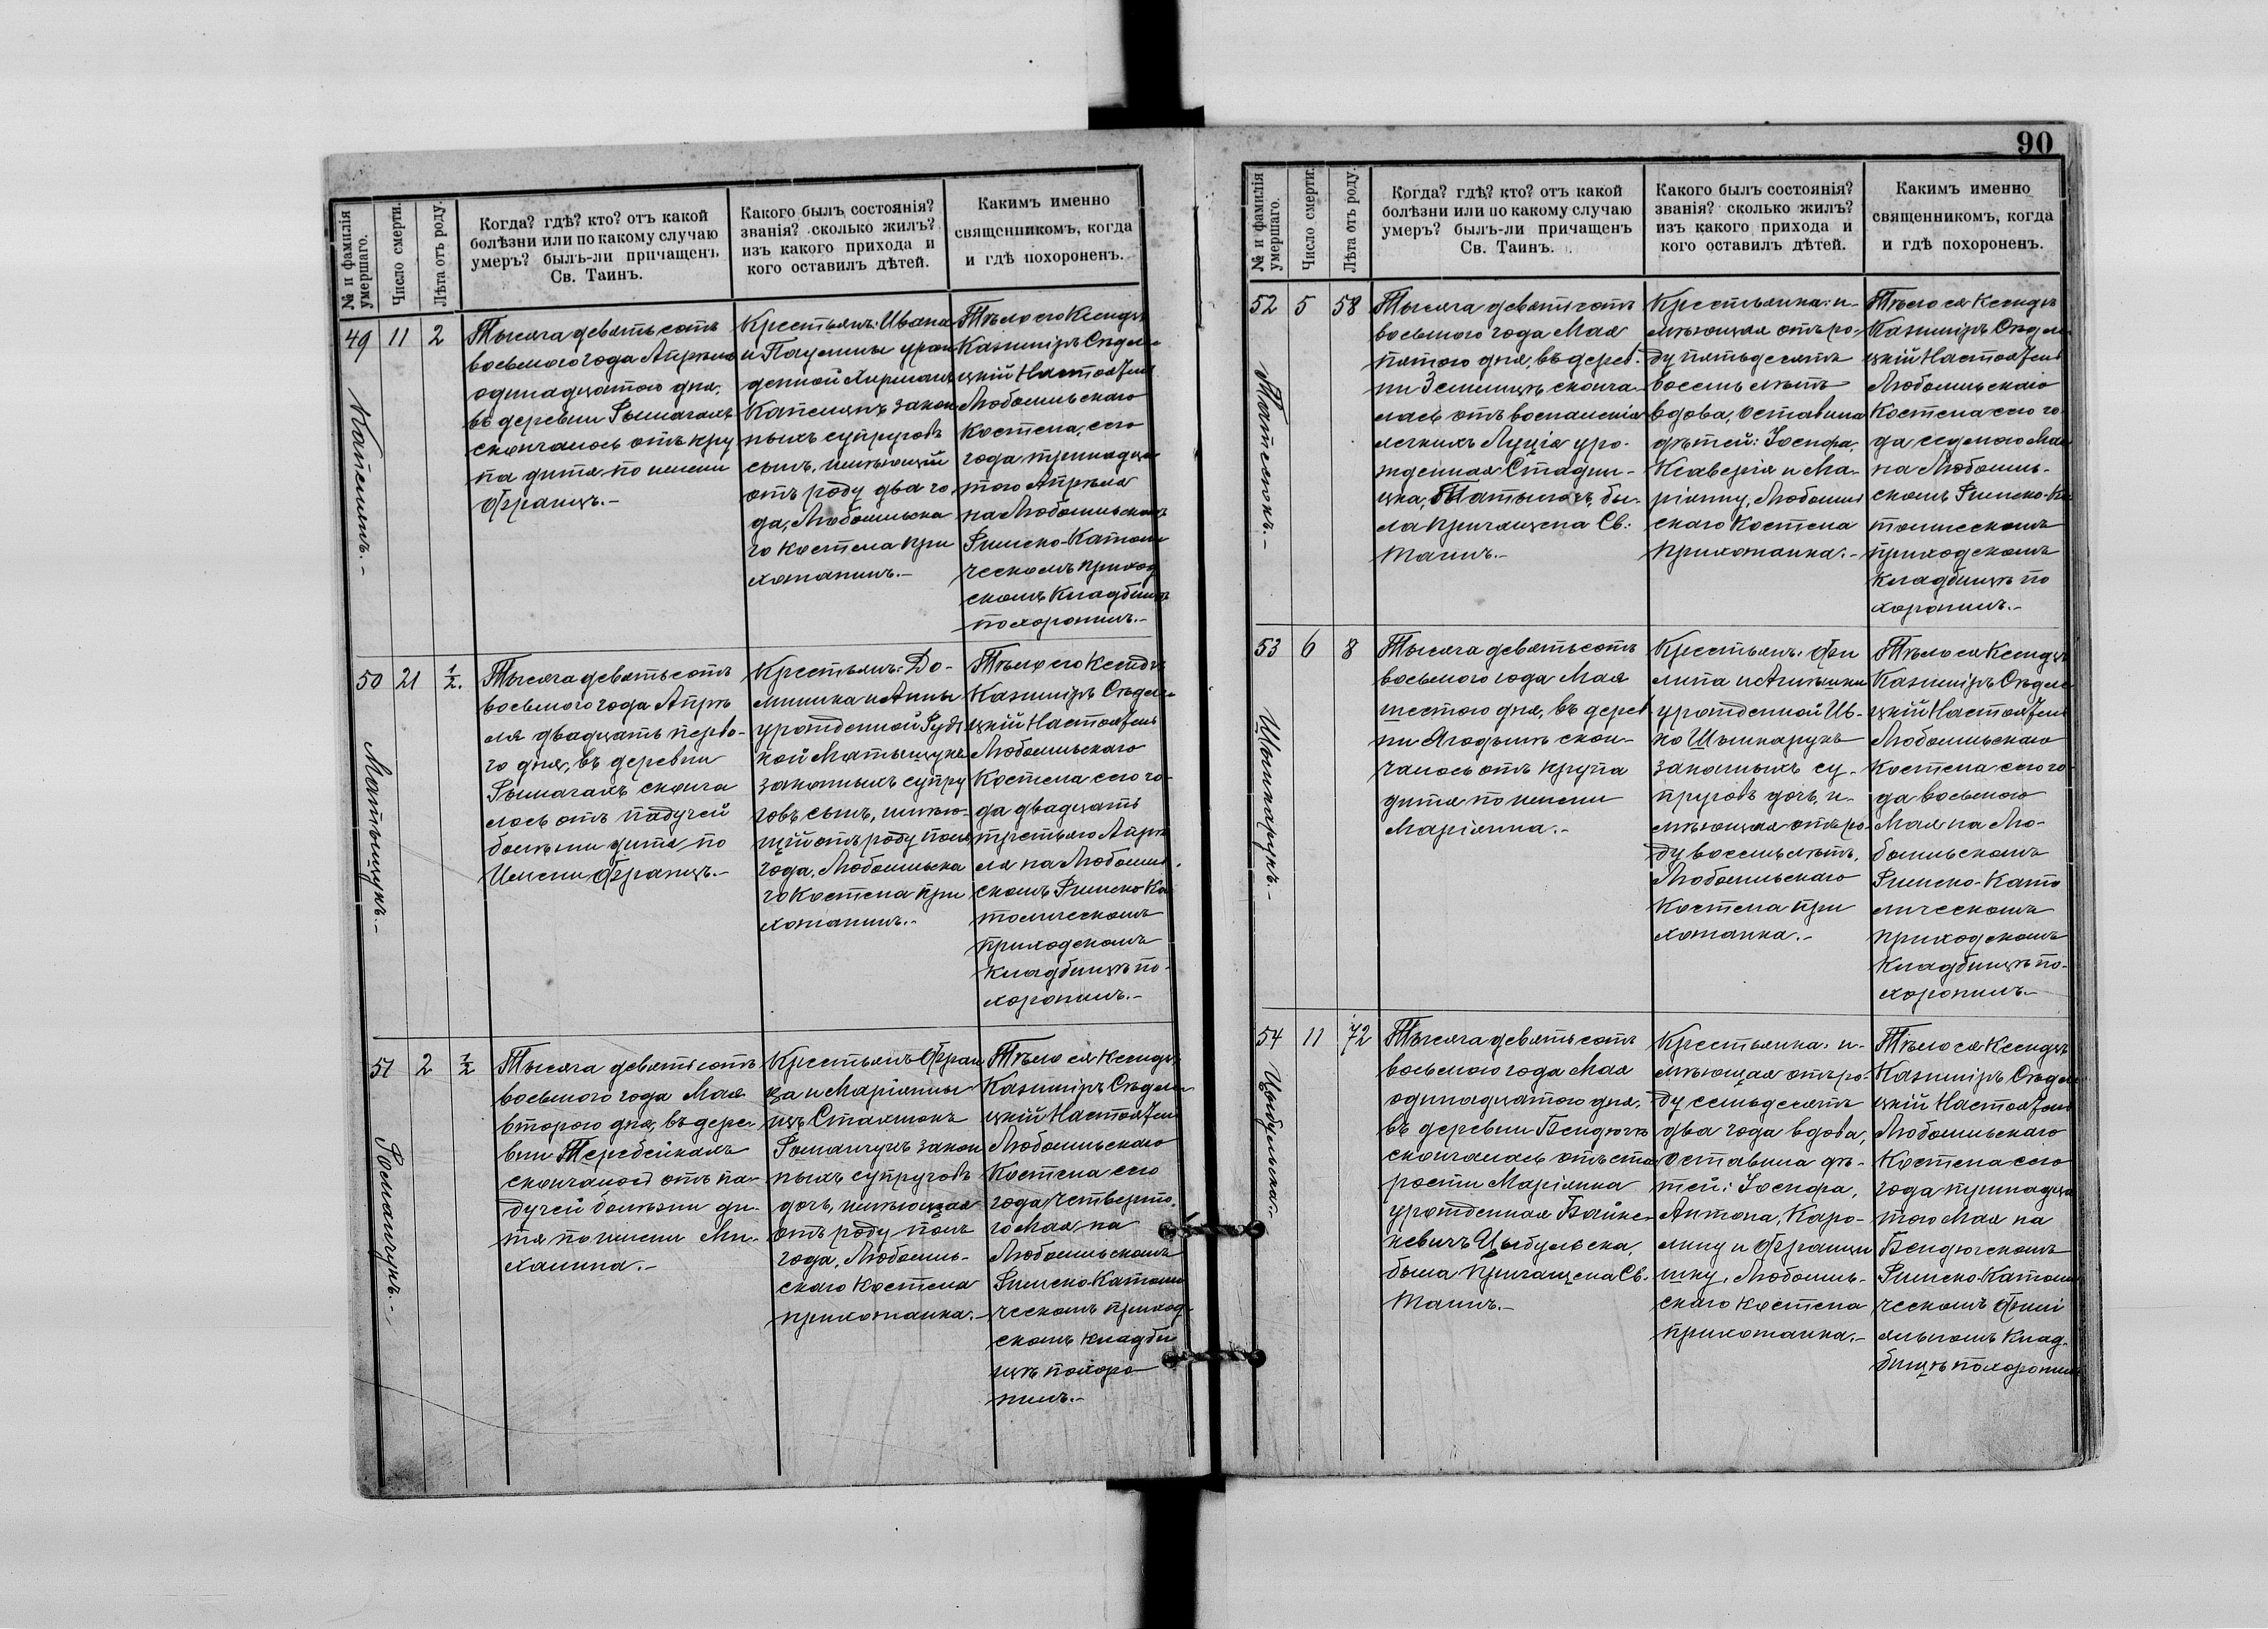 90
№ и фамилія
умершаго.
Число смерти.
Лѣта отъ роду.
Когда? гдѣ? кто? отъ какой
болѣзни или по какому случаю
умеръ? былъ-ли причащенъ
Св. Таинъ.
Какого былъ состоянія?
званія? сколько жилъ?
изъ какого прихода и
кого оставилъ дѣтей.
Какимъ именно
священникомъ, когда
и гдѣ похороненъ.
49
Капелянъ.-
11
2
Тысяча девятьсотъ
восьмого года Апрѣля
одинадцатого дня,
въ деревни Рымачахъ
скончалось отъ кру
па дитя по имени
Францъ.-
Крестьянъ: Ивана
и Паулины урож
денной
Капелянъ закон
ныхъ супруговъ
сынъ, имѣющій
отъ роду два го
да, Любомльска
го костела при
хожанинъ.-
Тѣло его Ксендзъ
Казиміръ Сѣдле
цкій Настоятель
Любомльскаго
Костела, сего
года тринадца
того Апрѣля
на Любомльскомъ
Римско-Католи
ческомъ приход
скомъ Кладбищѣ
похоронилъ.-
50
Матыщукъ.-
21
1/2.
Тысяча девятьсотъ
восьмого года Апрѣ
ля двадцать перво-
го дня, въ деревни
Рымачахъ сконча
лось отъ падучей
болѣзни дитя по
Имени Францъ.-
Крестьянъ: До-
миника и Анны
урожденной
Матыщукъ
законныхъ супру
говъ сынъ, имѣю-
щій отъ роду полъ
года, Любомльска
го Костела при
хожанинъ.-
Тѣло его Ксендзъ
Казиміръ Сѣдле
цкій Настоятель
Любомльскаго
Костела сего го-
да двадцать
третьяго Апрѣ
ля на Любомль
скомъ Римско Ка
толическомъ
приходскомъ
Кладбищѣ по-
хоронилъ.-
51
Романчукъ.-
2
1/2
Тысяча девятьсотъ
восьмого года Мая
второго дня, въ дере-
вни Теребейкахъ
скончалось отъ па-
дучей болѣзни ди-
тя по имени Ми-
халина.-
Крестьянъ Фран
ца и Маріянны
изъ
Романчукъ закон
ныхъ супруговъ
дочь, имѣющая
отъ роду полъ
года, Любомль-
скаго Костела
прихожанка.-
Тѣло ея Ксендзъ
Казиміръ Сѣдле-
цкій Настоятель
Любомльскаго
Костела сего
года четверто-
го Мая на
Любомльскомъ
Римско-Католи
ческомъ приход-
скомъ кладби
щѣ похоро
нилъ.-
№ и фамилія
умершаго.
Число смерти.
Лѣта отъ роду.
Когда? гдѣ? кто? отъ какой
болѣзни или по какому случаю
умеръ? былъ-ли причащенъ
Св. Таинъ.
Какого былъ состоянія?
званія? сколько жилъ?
изъ какого прихода и
кого оставилъ дѣтей.
Какимъ именно
священникомъ, когда
и гдѣ похороненъ.
52
5
58
Тысяча девятьсотъ
восьмого года Мая
пятого дня, въ дерев-
ни Землицѣ сконча-
лась отъ воспаленія
легкихъ Луція уро-
жденная
бы-
ла причащена Св.
Таинъ.-
Крестьянка: и-
мѣющая отъ ро-
ду пятьдесятъ
восемь лѣтъ
вдова, оставила
дѣтей: Іосифа,
Ксаверія и Ма-
ріянну, Любомль
скаго Костела
прихожанка.-
Тѣло ея Ксендзъ
Казиміръ Сѣдле-
цкій Настоятель
Любомльскаго
Костела сего го-
да седмого Мая
на Любомль-
скомъ Римско-Ка
толическомъ
приходскомъ
Кладбищѣ по
хоронилъ.-
53
Цымкарукъ.-
6
8
Тысяча девятьсотъ
восьмого года Мая
шестого дня, въ дерев
ни Ягодынѣ скон-
чалось отъ крупа
дитя по имени
Маріянна.-
Крестьянъ: Фи
липа и
урожденной Ив-
ко Цымкарукъ
законныхъ су-
пруговъ дочь, и-
мѣющая отъ ро-
ду восемь лѣтъ,
Любомльскаго
Костела при
хожанка.-
Тѣло ея Ксендзъ
Казиміръ Сѣдле
цкій Настоятель
Любомльскаго
Костела сего го-
да восьмого
Мая на Лю-
бомльскомъ
Римско-Като
лическомъ
приходскомъ
Кладбищѣ по-
хоронилъ.-
54
Цыбульска.-
11
72
Тысяча девятьсотъ
восьмого года Мая
одинадцатого дня,
въ деревни Бендюгѣ
скончалась отъ ста
рости Маріянна
урожденная
Цыбульска,
была Причащена Св.
Таинъ.-
Крестьянка: и-
мѣющая отъ ро-
ду семьдесятъ
два года вдова,
оставила дѣ-
тей: Іосифа,
Антона, Каро-
лину и Франци
шку, Любомль-
скаго Костела
прихожанка.-
Тѣло ея Ксендзъ
Казиміръ Сѣдле
цкій Настоятель
Любомльскаго
Костела сего
года тринадца
того Мая на
Бендюгскомъ
Римско-Католи
ческомъ Филі
яльномъ Клад-
бищѣ похоронилъ